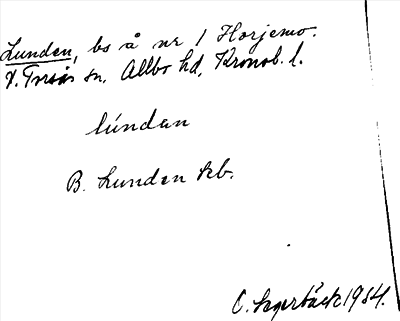 Lunden, bs å nr 1 Horjemo.
V. Torsås sn, Allbo hd, Kronob. l.
lúndan
B. Lunden kb.
O. 1954.